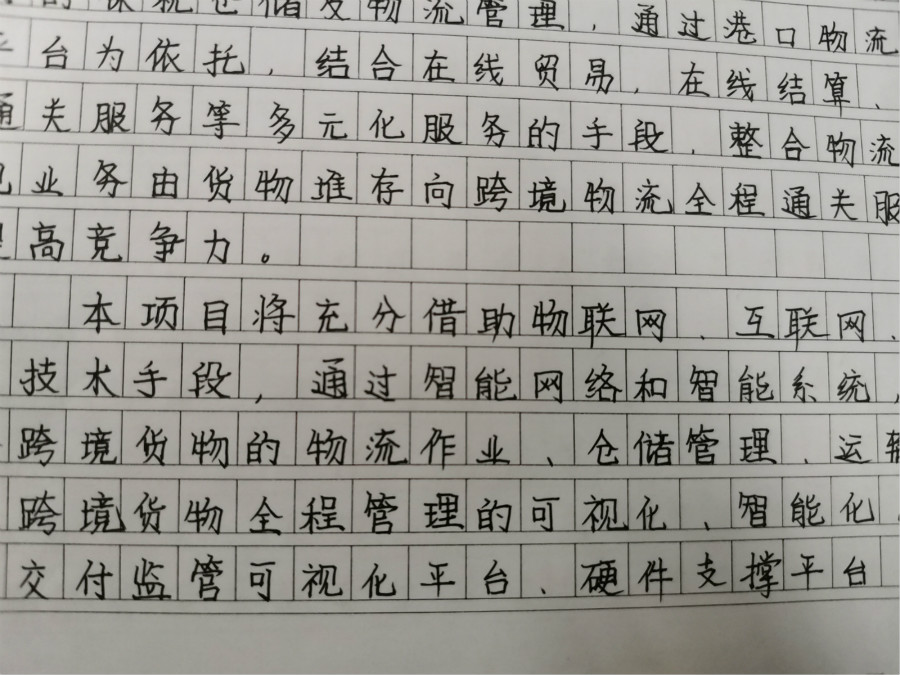 的 仓储及物流管理，通过港口物流
平台为依托，结合在线贸易，在线结算、
通关服务等多元化服务的手段，整合物流
业务由货物堆存向跨境物流全程通关服
提高竞争力。
本项目将充分借助物联网、互联网、
技术手段，通过智能网络和智能系统，
跨境货物的物流作业、仓储管理、运输
跨境货物全程管理的可视化、智能化
交付监管可视化平台、硬件支撑平台